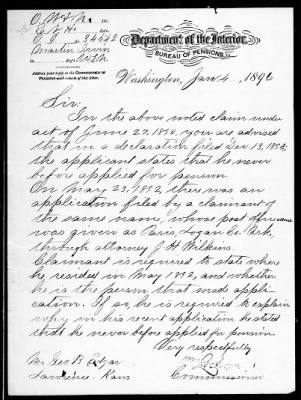 Department of the Interior,
BUREAU OF PENSIONS,
Washington, Jan. 4, 1896
34442
Martin Irvin
Address your reply to the COMMISSIONER OF
PENSIONS
Sir:
In the above noted claim under
act of June 27, 1890, you are advised
that in a declaration filed Dec 13, 1895,
the applicant states that he never
before applied for pension.
On May 23, 1892, there was an
application filed by a claimant of
the same name, whose post office
was given as Paris, Logan Co. Ark,
through attorney J H Wilkins.
Claimant is required to state where
he resided in May 1892, and whether
he is the person that made appli-
cation. If so, he is required to explain
why in his recent application he stated
that he never before applied for pension
Very respectfully
Mr. Geo B. Edgar
Lawrence, Kans
Commissioner